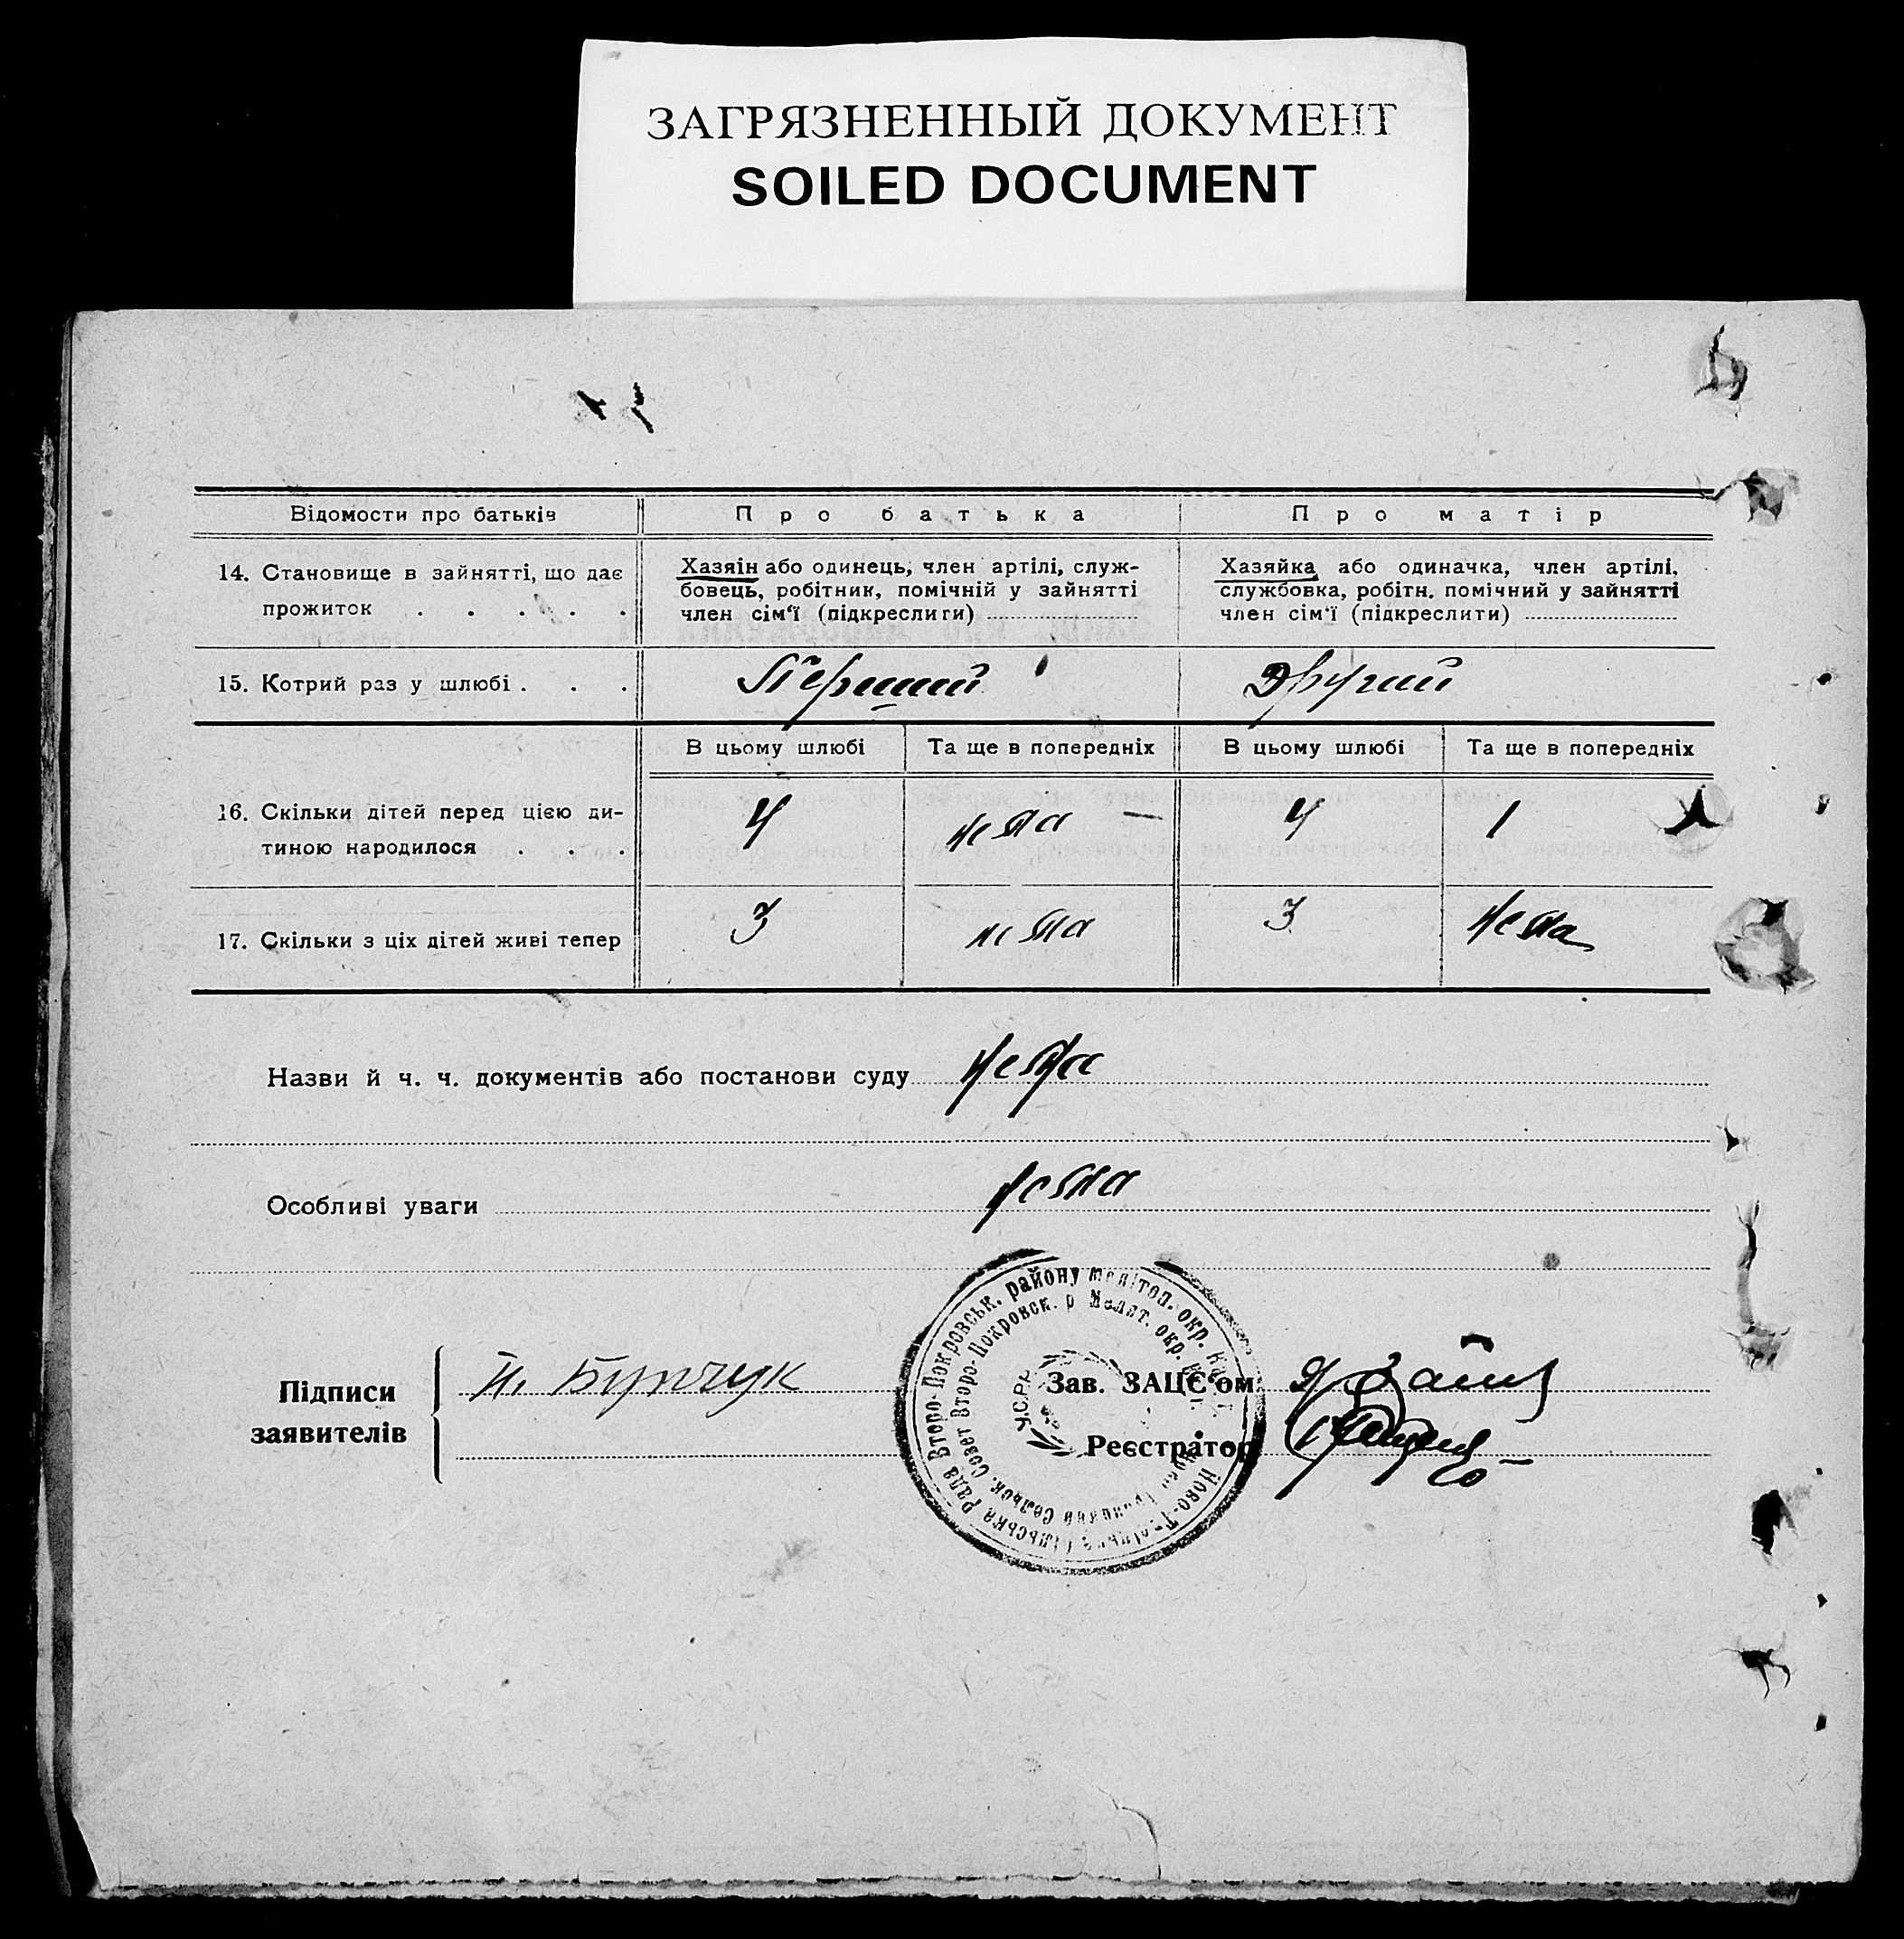 ЗАГРЯЗНЕННЫЙ ДОКУМЕНТ
SOILED DOCUMENT
Відомости про батьків
Про батька
Про матір
14. Становище в зайнятті, що дає
прожиток . . . . .
Хазяін або одинець, член артілі, служ-
бовець, робітник, помічній у зайнятті
член сім'ї (підкреслити)
Хазяйка або одиначка, член артілі,
службовка, робітн. помічний у зайнятті
член сім'ї (підкреслити)
15. Котрий раз у шлюбі . . .
Перший
Другий
В цьому шлюбі
Та ще в попередніх
В цьому шлюбі
Та ще в попередніх
16. Скільки дітей перед цією ди-
тиною народилося . . .
4
нема —
4
1
17. Скільки з ціх дітей живі тепер
3
нема
3
нема
Назви й ч. ч. документів або постанови суду нема
Особливі уваги нема
Підписи
заявителів
Зав. ЗАЦС'ом
Реєстратор
Второ-Покровськ. району Меліт​оп. окр.
Совет Второ-Покровск. р Мелит. окр.
У.С.Р.Р.